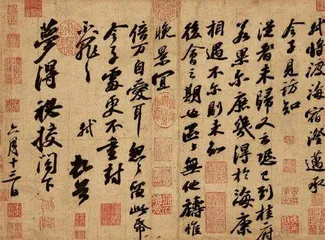 軾將渡海宿澄邁承
令子見訪知
從者未歸又云恐已到桂府
若果爾庶幾得於海康
相遇不爾則未知
後會之期也區區無他禱惟
晚景宜
倍万自愛耳匆匆留此帋
令子處更不重封
不罪〻〻 軾頓首
夢得祕校閣下
六月十三日